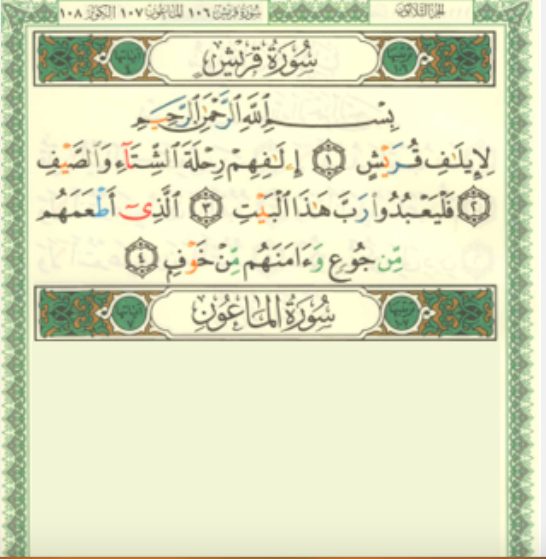 الجزء الثلاثون
سورة قريش ١٠٦ الماعون ١٠٧ الكوثر ١٠٨
سُورَةُ قُرَيْشٍ
بِسْمِ ٱللَّهِ ٱلرَّحْمَٰنِ ٱلرَّحِيمِ
لِإِيلَٰفِ قُرَيْشٍ ١ إِۦلَٰفِهِمْ رِحْلَةَ ٱلشِّتَآءِ وَٱلصَّيْفِ
٢ فَلْيَعْبُدُوا۟ رَبَّ هَٰذَا ٱلْبَيْتِ ٣ ٱلَّذِىٓ أَطْعَمَهُم
مِّن جُوعٍ وَءَامَنَهُم مِّنْ خَوْفٍۭ ٤
سُورَةُ المَاعُونِ